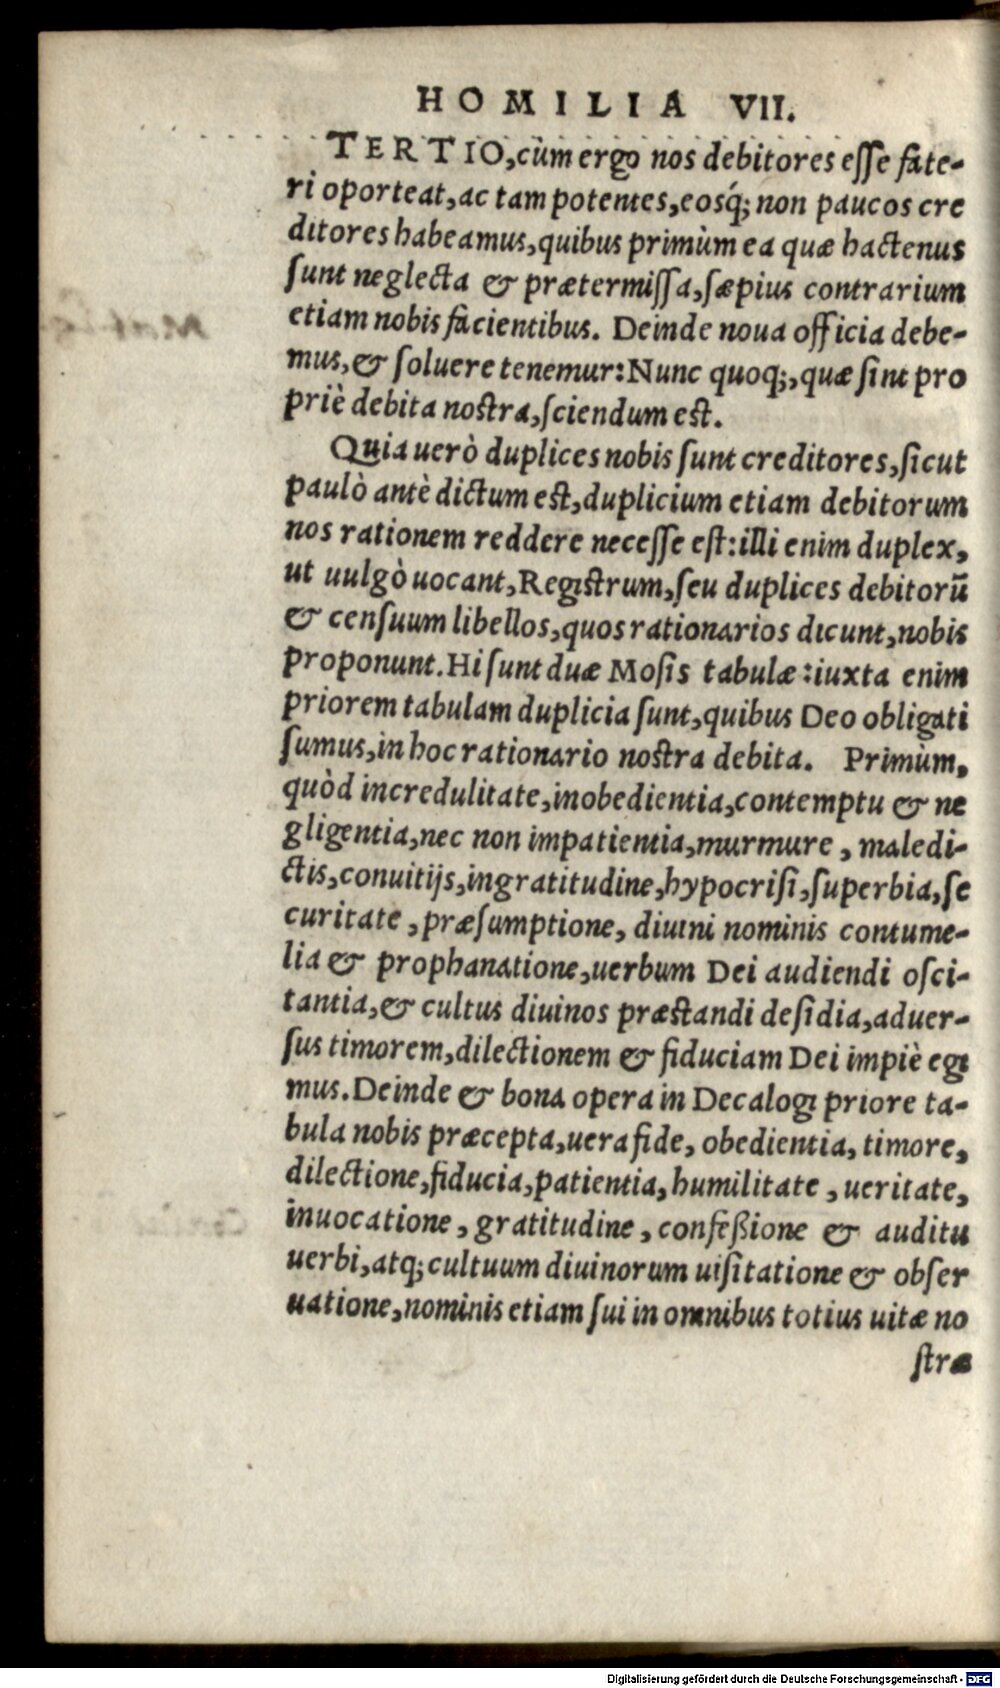 HOMILIA VII.
TERTIO, cùm ergo nos debitores esse fate-
ri oporteat, ac tam potentes, eosq́; non paucos cre
ditores habeamus, quibus primùm ea quæ hactenus
sunt neglecta & prætermissa, sæpius contrarium
etiam nobis facientibus. Deinde noua officia debe-
mus, & soluere tenemur: Nunc quoq;, quæ sint pro
priè debita nostra, sciendum est.
Quia uerò duplices nobis sunt creditores, sicut
paulò antè dictum est, duplicium etiam debitorum
nos rationem reddere necesse est: illi enim duplex,
ut uulgò uocant, Registrum, seu duplices debitorū
& censuum libellos, quos rationarios dicunt, nobis
proponunt. Hi sunt duæ Mosis tabulæ: iuxta enim
priorem tabulam duplicia sunt, quibus Deo obligati
sumus, in hoc rationario nostra debita. Primùm,
quòd incredulitate, inobedientia, contemptu & ne
gligentia, nec non impatientia, murmure, maledi-
ctis, conuitijs, ingratitudine, hypocrisi, superbia, se
curitate, præsumptione, diuini nominis contume-
lia & prophanatione, uerbum Dei audiendi osci-
tantia, & cultus diuinos præstandi desidia, aduer-
sus timorem, dilectionem & fiduciam Dei impiè egi
mus. Deinde & bona opera in Decalogi priore ta-
bula nobis præcepta, uera fide, obedientia, timore,
dilectione, fiducia, patientia, humilitate, ueritate,
inuocatione, gratitudine, confeßione & auditu
uerbi, atq; cultuum diuinorum uisitatione & obser
uatione, nominis etiam sui in omnibus totius uitæ no
stræ
Digitalisierung gefördert durch die Deutsche Forschungsgemeinschaft - DFG